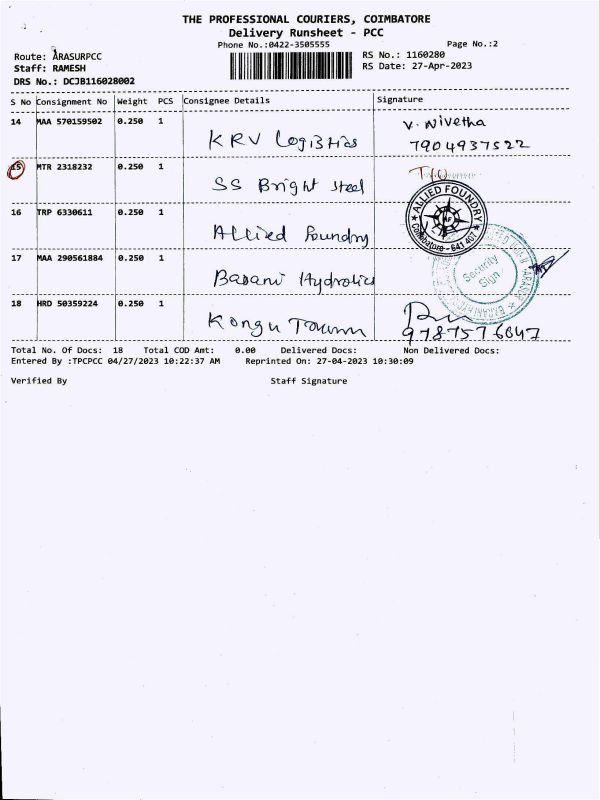 THE PROFESSIONAL COURIERS, COIMBATORE
Delivery Runsheet - PCC
Phone No.:0422-3505555 Page No.:2
Route: ARASURPCC RS No.: 1160280
Staff: RAMESH RS Date: 27-Apr-2023
DRS No.: DCJB116028002
S No Consignment No Weight PCS Consignee Details Signature
14 MAA 570159502 0.250 1 V. Nivetha
KRV Logistics 7904937522
15 MTR 2318232 0.250 1
SS Bright steel
16 TRP 6330611 0.250 1 ALLIED FOUNDRY
AF
Allied Foundry Coimbatore - 641 407
17 MAA 290561884 0.250 1 Security
Sign
Basani Hydrolics
18 HRD 50359224 0.250 1
Kongu 9787576047
Total No. Of Docs: 18 Total COD Amt: 0.00 Delivered Docs: Non Delivered Docs:
Entered By :TPCPCC 04/27/2023 10:22:37 AM Reprinted On: 27-04-2023 10:30:09
Verified By Staff Signature